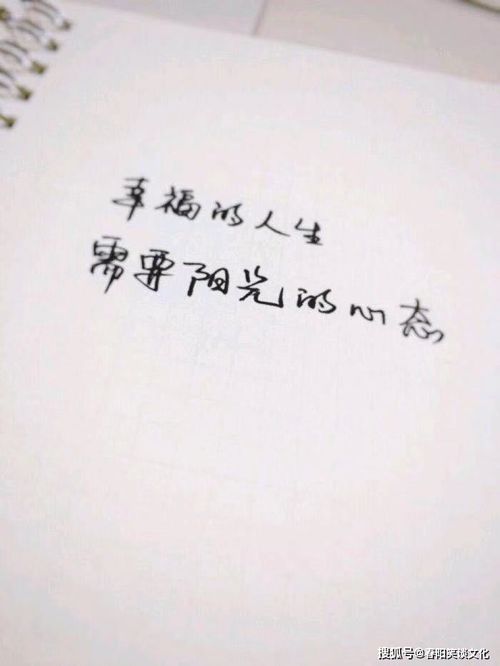 幸福的人生
需要阳光的心态
搜狐号@春阳笑谈文化